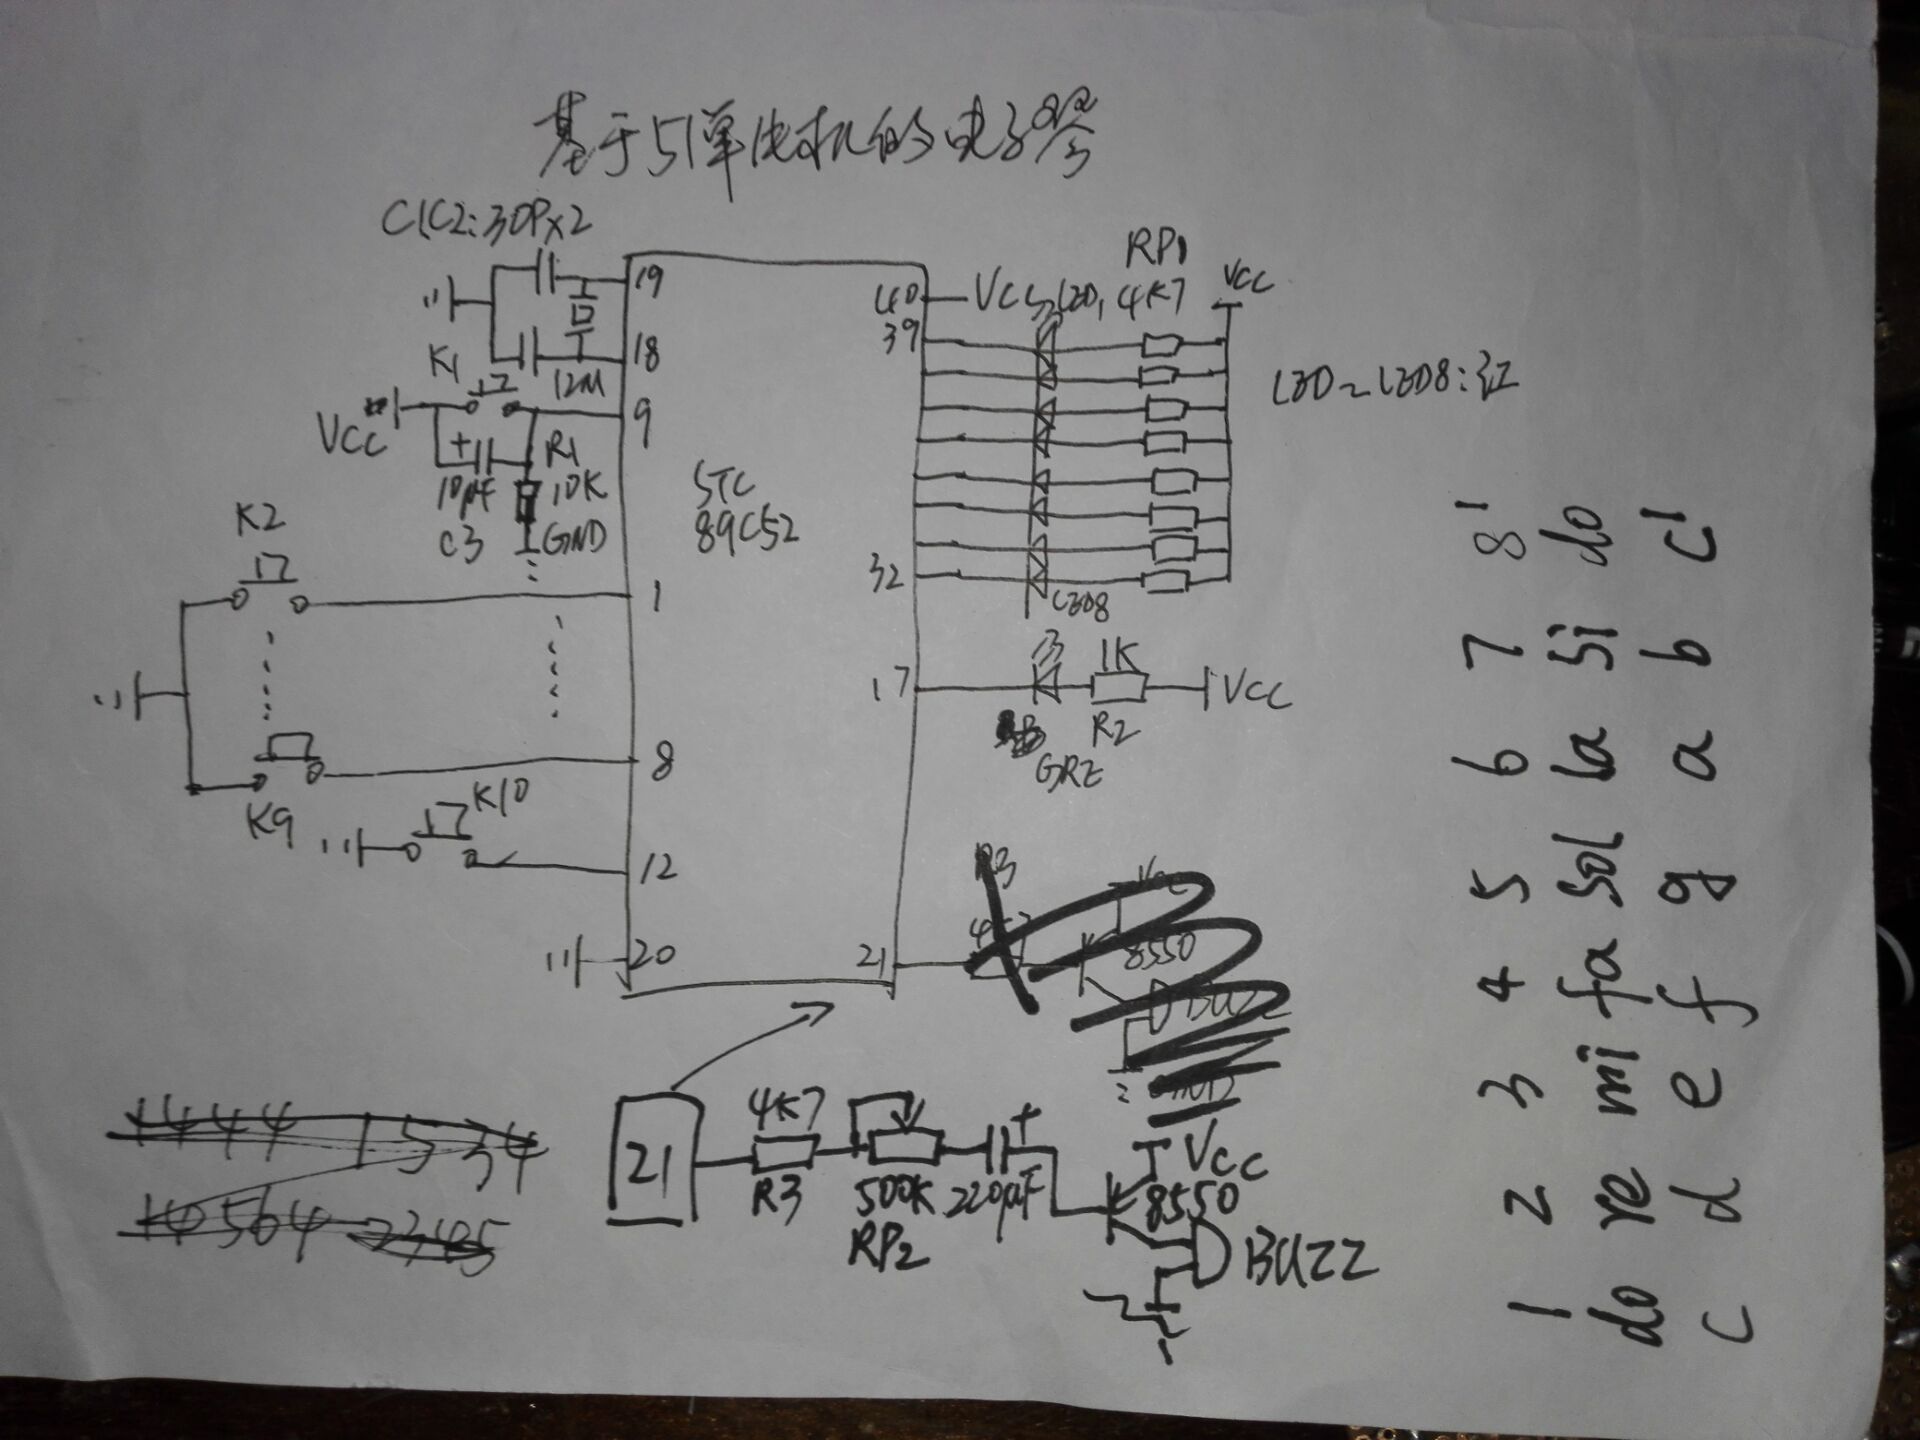 基于51单片机的电子琴
C1C2:30P×2
19
18
12M
K1
9
VCC
+
10μF
C3
R1
10K
GND
K2
1
K9
8
K10
12
20
STC
89C52
40
VCC
LED1
RP1
4K7
VCC
39
32
LED8
LED~LED8:红
17
1K
R2
VCC
21
R3
8550
BUZZ
21
4K7
R3
500K
RP2
220μF
+
VCC
8550
BUZZ
1 2 3 4 5 6 7 8'
do re mi fa sol la si do
c d e f g a b c'